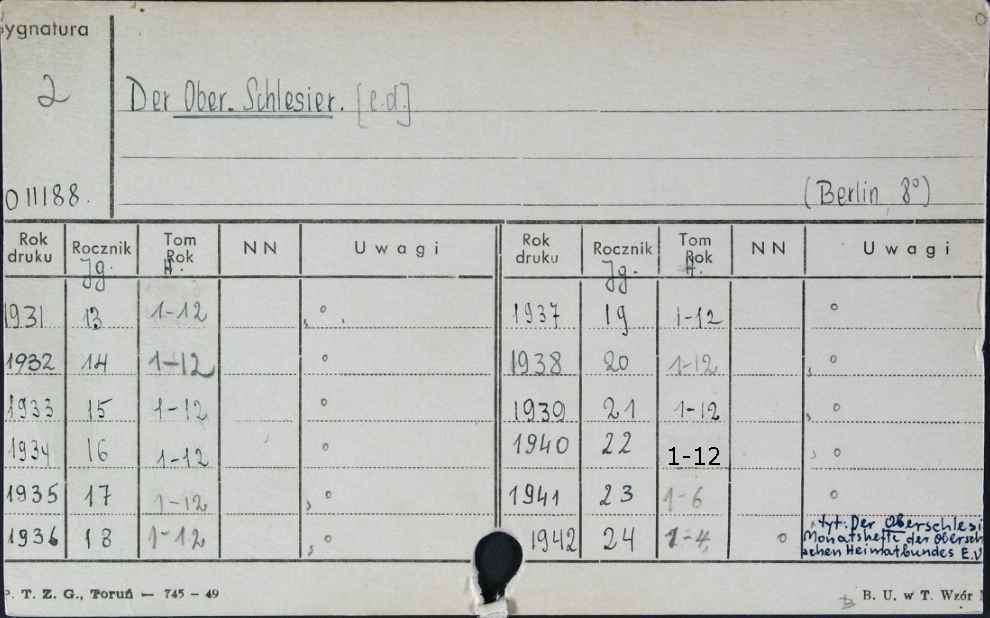 Sygnatura
2
Der Ober-Schlesier. [c.d.]
011188.
(Berlin, 8°)
Rok druku Rocznik Tom Rok NN Uwagi Rok druku Rocznik Tom Rok NN Uwagi
Jg. H. Jg. H.
1931 13 1-12 ° 1937 19 1-12 °
1932 14 1-12 ° 1938 20 1-12 °
1933 15 1-12 ° 1939 21 1-12 °
1934 16 1-12 ° 1940 22 1-12 °
1935 17 1-12 ° 1941 23 1-6 °
1936 18 1-12 ° 1942 24 1-4 °
tyt: Der Oberschlesi
Monatshefte der Obersch
schen Heimatbundes E.V
P. T. Z. G., Toruń — 745 - 49
B. U. w T. Wzór